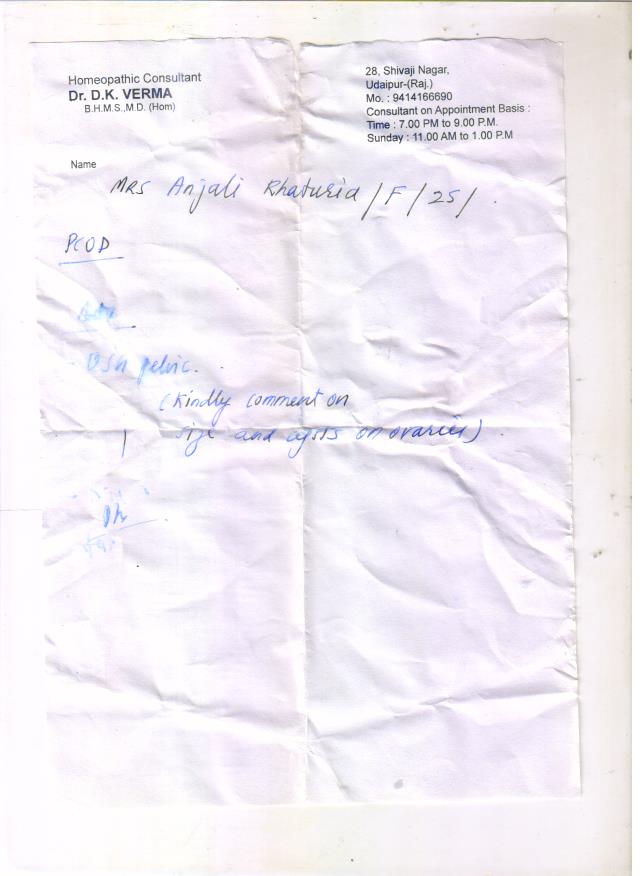 Homeopathic Consultant
Dr. D.K. VERMA
B.H.M.S.,M.D. (Hom)
28, Shivaji Nagar,
Udaipur-(Raj.)
Mo. : 9414166690
Consultant on Appointment Basis :
Time : 7.00 PM to 9.00 P.M.
Sunday : 11.00 AM to 1.00 P.M
Name
MRS Anjali Khaturia /F/25/
PCOD
USG pelvic.
(Kindly comment on
size and cysts on ovaries)